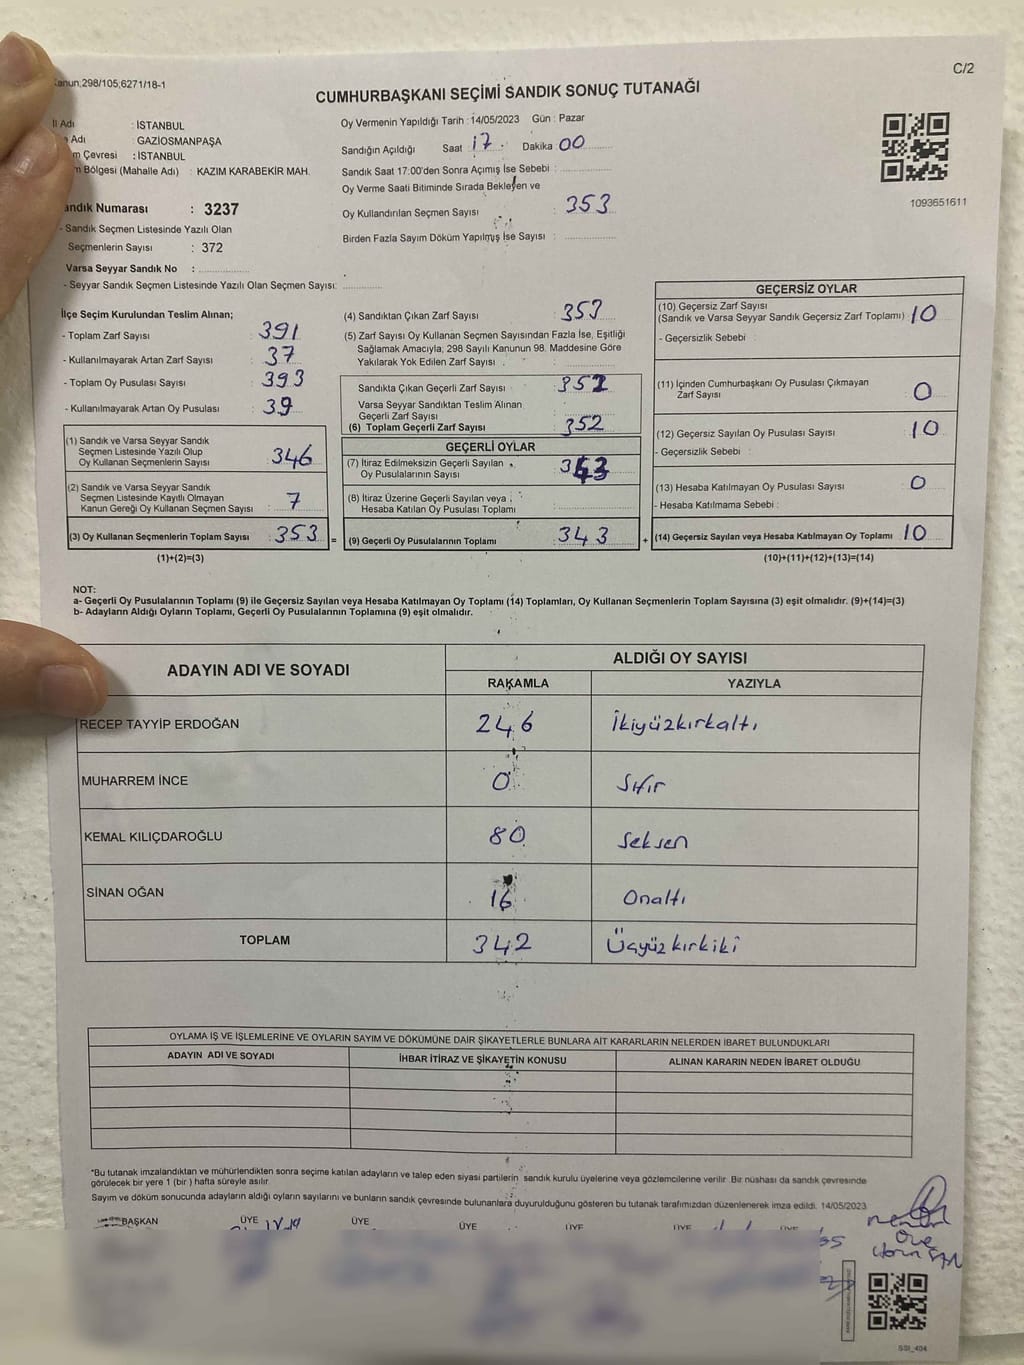 Kanun;298/105;6271/18-1
C/2
CUMHURBAŞKANI SEÇİMİ SANDIK SONUÇ TUTANAĞI
Adı : İSTANBUL
Adı : GAZİOSMANPAŞA
Çevresi : İSTANBUL
Bölgesi (Mahalle Adı) : KAZIM KARABEKİR MAH.
Sandık Numarası : 3237
- Sandık Seçmen Listesinde Yazılı Olan
Seçmenlerin Sayısı : 372
Varsa Seyyar Sandık No :
- Seyyar Sandık Seçmen Listesinde Yazılı Olan Seçmen Sayısı:
Oy Vermenin Yapıldığı Tarih : 14/05/2023 Gün : Pazar
Sandığın Açıldığı Saat 17 Dakika 00
Sandık Saat 17:00'den Sonra Açımış İse Sebebi :
Oy Verme Saati Bitiminde Sırada Bekleyen ve
Oy Kullandırılan Seçmen Sayısı : 353
Birden Fazla Sayım Döküm Yapılmış İse Sayısı :
1093651611
İlçe Seçim Kurulundan Teslim Alınan;
- Toplam Zarf Sayısı : 391
- Kullanılmayarak Artan Zarf Sayısı : 37
- Toplam Oy Pusulası Sayısı : 393
- Kullanılmayarak Artan Oy Pusulası : 39
(1) Sandık ve Varsa Seyyar Sandık
Seçmen Listesinde Yazılı Olup
Oy Kullanan Seçmenlerin Sayısı : 346
(2) Sandık ve Varsa Seyyar Sandık
Seçmen Listesinde Kayıtlı Olmayan
Kanun Gereği Oy Kullanan Seçmen Sayısı : 7
(3) Oy Kullanan Seçmenlerin Toplam Sayısı : 353 =
(1)+(2)=(3)
(4) Sandıktan Çıkan Zarf Sayısı : 353
(5) Zarf Sayısı Oy Kullanan Seçmen Sayısından Fazla İse, Eşitliği
Sağlamak Amacıyla; 298 Sayılı Kanunun 98. Maddesine Göre
Yakılarak Yok Edilen Zarf Sayısı :
Sandıkta Çıkan Geçerli Zarf Sayısı : 352
Varsa Seyyar Sandıktan Teslim Alınan
Geçerli Zarf Sayısı :
(6) Toplam Geçerli Zarf Sayısı : 352
GEÇERLİ OYLAR
(7) İtiraz Edilmeksizin Geçerli Sayılan
Oy Pusulalarının Sayısı : 343
(8) İtiraz Üzerine Geçerli Sayılan veya
Hesaba Katılan Oy Pusulası Toplamı :
(9) Geçerli Oy Pusulalarının Toplamı : 343 +
GEÇERSİZ OYLAR
(10) Geçersiz Zarf Sayısı
(Sandık ve Varsa Seyyar Sandık Geçersiz Zarf Toplamı) : 10
- Geçersizlik Sebebi :
(11) İçinden Cumhurbaşkanı Oy Pusulası Çıkmayan
Zarf Sayısı : 0
(12) Geçersiz Sayılan Oy Pusulası Sayısı : 10
- Geçersizlik Sebebi :
(13) Hesaba Katılmayan Oy Pusulası Sayısı : 0
- Hesaba Katılmama Sebebi :
(14) Geçersiz Sayılan veya Hesaba Katılmayan Oy Toplamı : 10
(10)+(11)+(12)+(13)=(14)
NOT:
a- Geçerli Oy Pusulalarının Toplamı (9) ile Geçersiz Sayılan veya Hesaba Katılmayan Oy Toplamı (14) Toplamları, Oy Kullanan Seçmenlerin Toplam Sayısına (3) eşit olmalıdır. (9)+(14)=(3)
b- Adayların Aldığı Oyların Toplamı, Geçerli Oy Pusulalarının Toplamına (9) eşit olmalıdır.
ADAYIN ADI VE SOYADI
ALDIĞI OY SAYISI
RAKAMLA YAZIYLA
RECEP TAYYİP ERDOĞAN 246 İkiyüzkırkaltı
MUHARREM İNCE 0 Sıfır
KEMAL KILIÇDAROĞLU 80 Seksen
SİNAN OĞAN 16 Onaltı
TOPLAM 342 Üçyüzkırkiki
OYLAMA İŞ VE İŞLEMLERİNE VE OYLARIN SAYIM VE DÖKÜMÜNE DAİR ŞİKAYETLERLE BUNLARA AİT KARARLARIN NELERDEN İBARET BULUNDUKLARI
ADAYIN ADI VE SOYADI İHBAR İTİRAZ VE ŞİKAYETİN KONUSU ALINAN KARARIN NEDEN İBARET OLDUĞU
*Bu tutanak imzalandıktan ve mühürlendikten sonra seçime katılan adayların ve talep eden siyasi partilerin sandık kurulu üyelerine veya gözlemcilerine verilir. Bir nüshası da sandık çevresinde
görülecek bir yere 1 (bir ) hafta süreyle asılır.
Sayım ve döküm sonucunda adayların aldığı oyların sayılarını ve bunların sandık çevresinde bulunanlara duyurulduğunu gösteren bu tutanak tarafımızdan düzenlenerek imza edildi. 14/05/2023
BAŞKAN ÜYE ÜYE ÜYE ÜYE ÜYE ÜYE
SSI_404